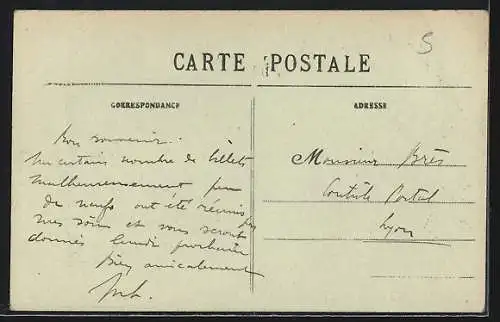 CARTE POSTALE
CORRESPONDANCE
ADRESSE
5
Bon souvenir.
Un certain nombre de billets
malheureusement peu
de neufs ont été réunis par
mes soins et vous seront
donnés lundi prochain
Bien amicalement
Monsieur Brès
Contrôle Postal
Lyon